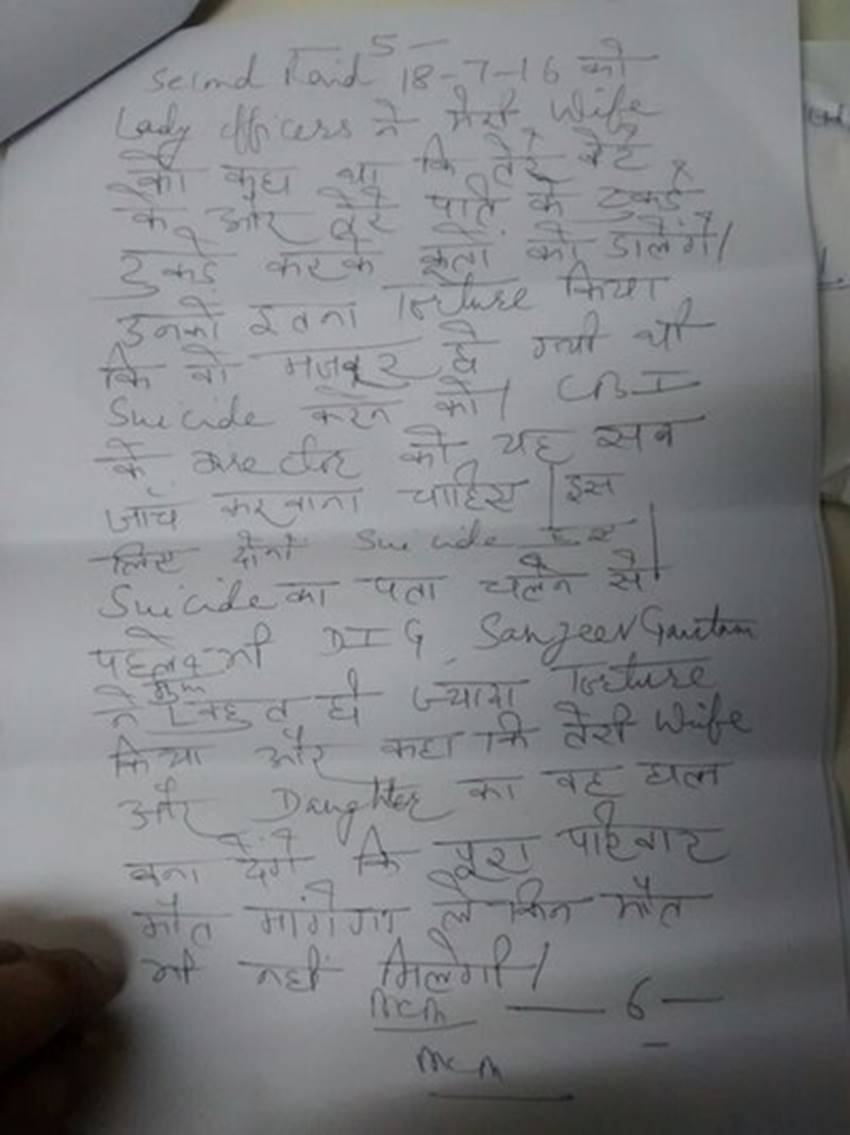 5-
Second Raid 18-7-16 को
Lady officers ने मेरी Wife
को कहा था कि तेरे बेटे
के और तेरे पति के टुकडे
टुकडे करके कुतों को डालेंगे।
उनको इतना Torture किया
कि वो मजबूर हो गयी थी
Suicide करने को। CBI
के को यह सब
जाँच करवाना चाहिए। इस
लिए दोनों Suicide
Suicide का पता चलने से
पहले भी DIG Sanjeev Gautam
ने मुझे बहुत ही ज्यादा Torture
किया और कहा कि तेरी Wife
और Daughter का वह हाल
बना देंगे कि पूरा परिवार
मौत मांगेगा लेकिन मौत
भी नहीं मिलेगी।
— 6 —